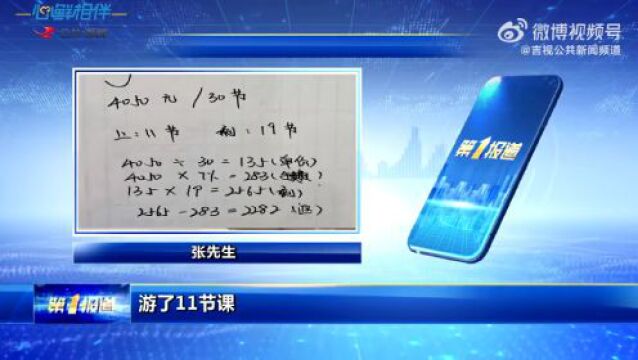 心脑相伴
微博视频号
@吉视公共新闻频道
4050元 / 30节
上:11节 剩:19节
4050 ÷ 30 = 135(单价)
4050 × 7% = 283
135 × 19 = 2565(剩)
2565 - 283 = 2282(退)
第1报道
张先生
第1报道
游了11节课